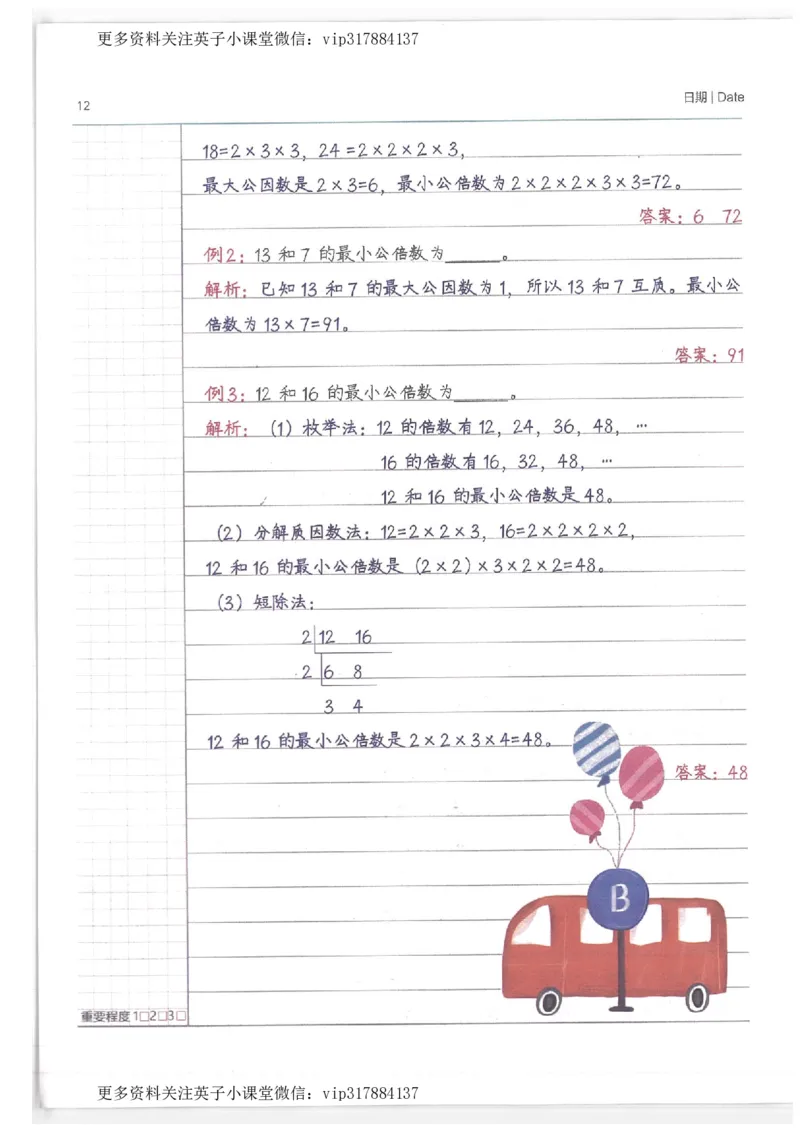 更多资料关注英子小课堂微信：vip317884137
12
日期 | Date
18=2×3×3，24=2×2×2×3，
最大公因数是2×3=6，最小公倍数为2×2×2×3×3=72。
答案：6 72
例2：13和7的最小公倍数为______。
解析：已知13和7的最大公因数为1，所以13和7互质。最小公
倍数为13×7=91。
答案：91
例3：12和16的最小公倍数为______。
解析：（1）枚举法：12的倍数有12，24，36，48，…
16的倍数有16，32，48，…
12和16的最小公倍数是48。
（2）分解质因数法：12=2×2×3，16=2×2×2×2，
12和16的最小公倍数是（2×2）×3×2×2=48。
（3）短除法：
2 12 16
2 6 8
3 4
12和16的最小公倍数是2×2×3×4=48。
答案：48
B
重要程度 1□2□3□
更多资料关注英子小课堂微信：vip317884137